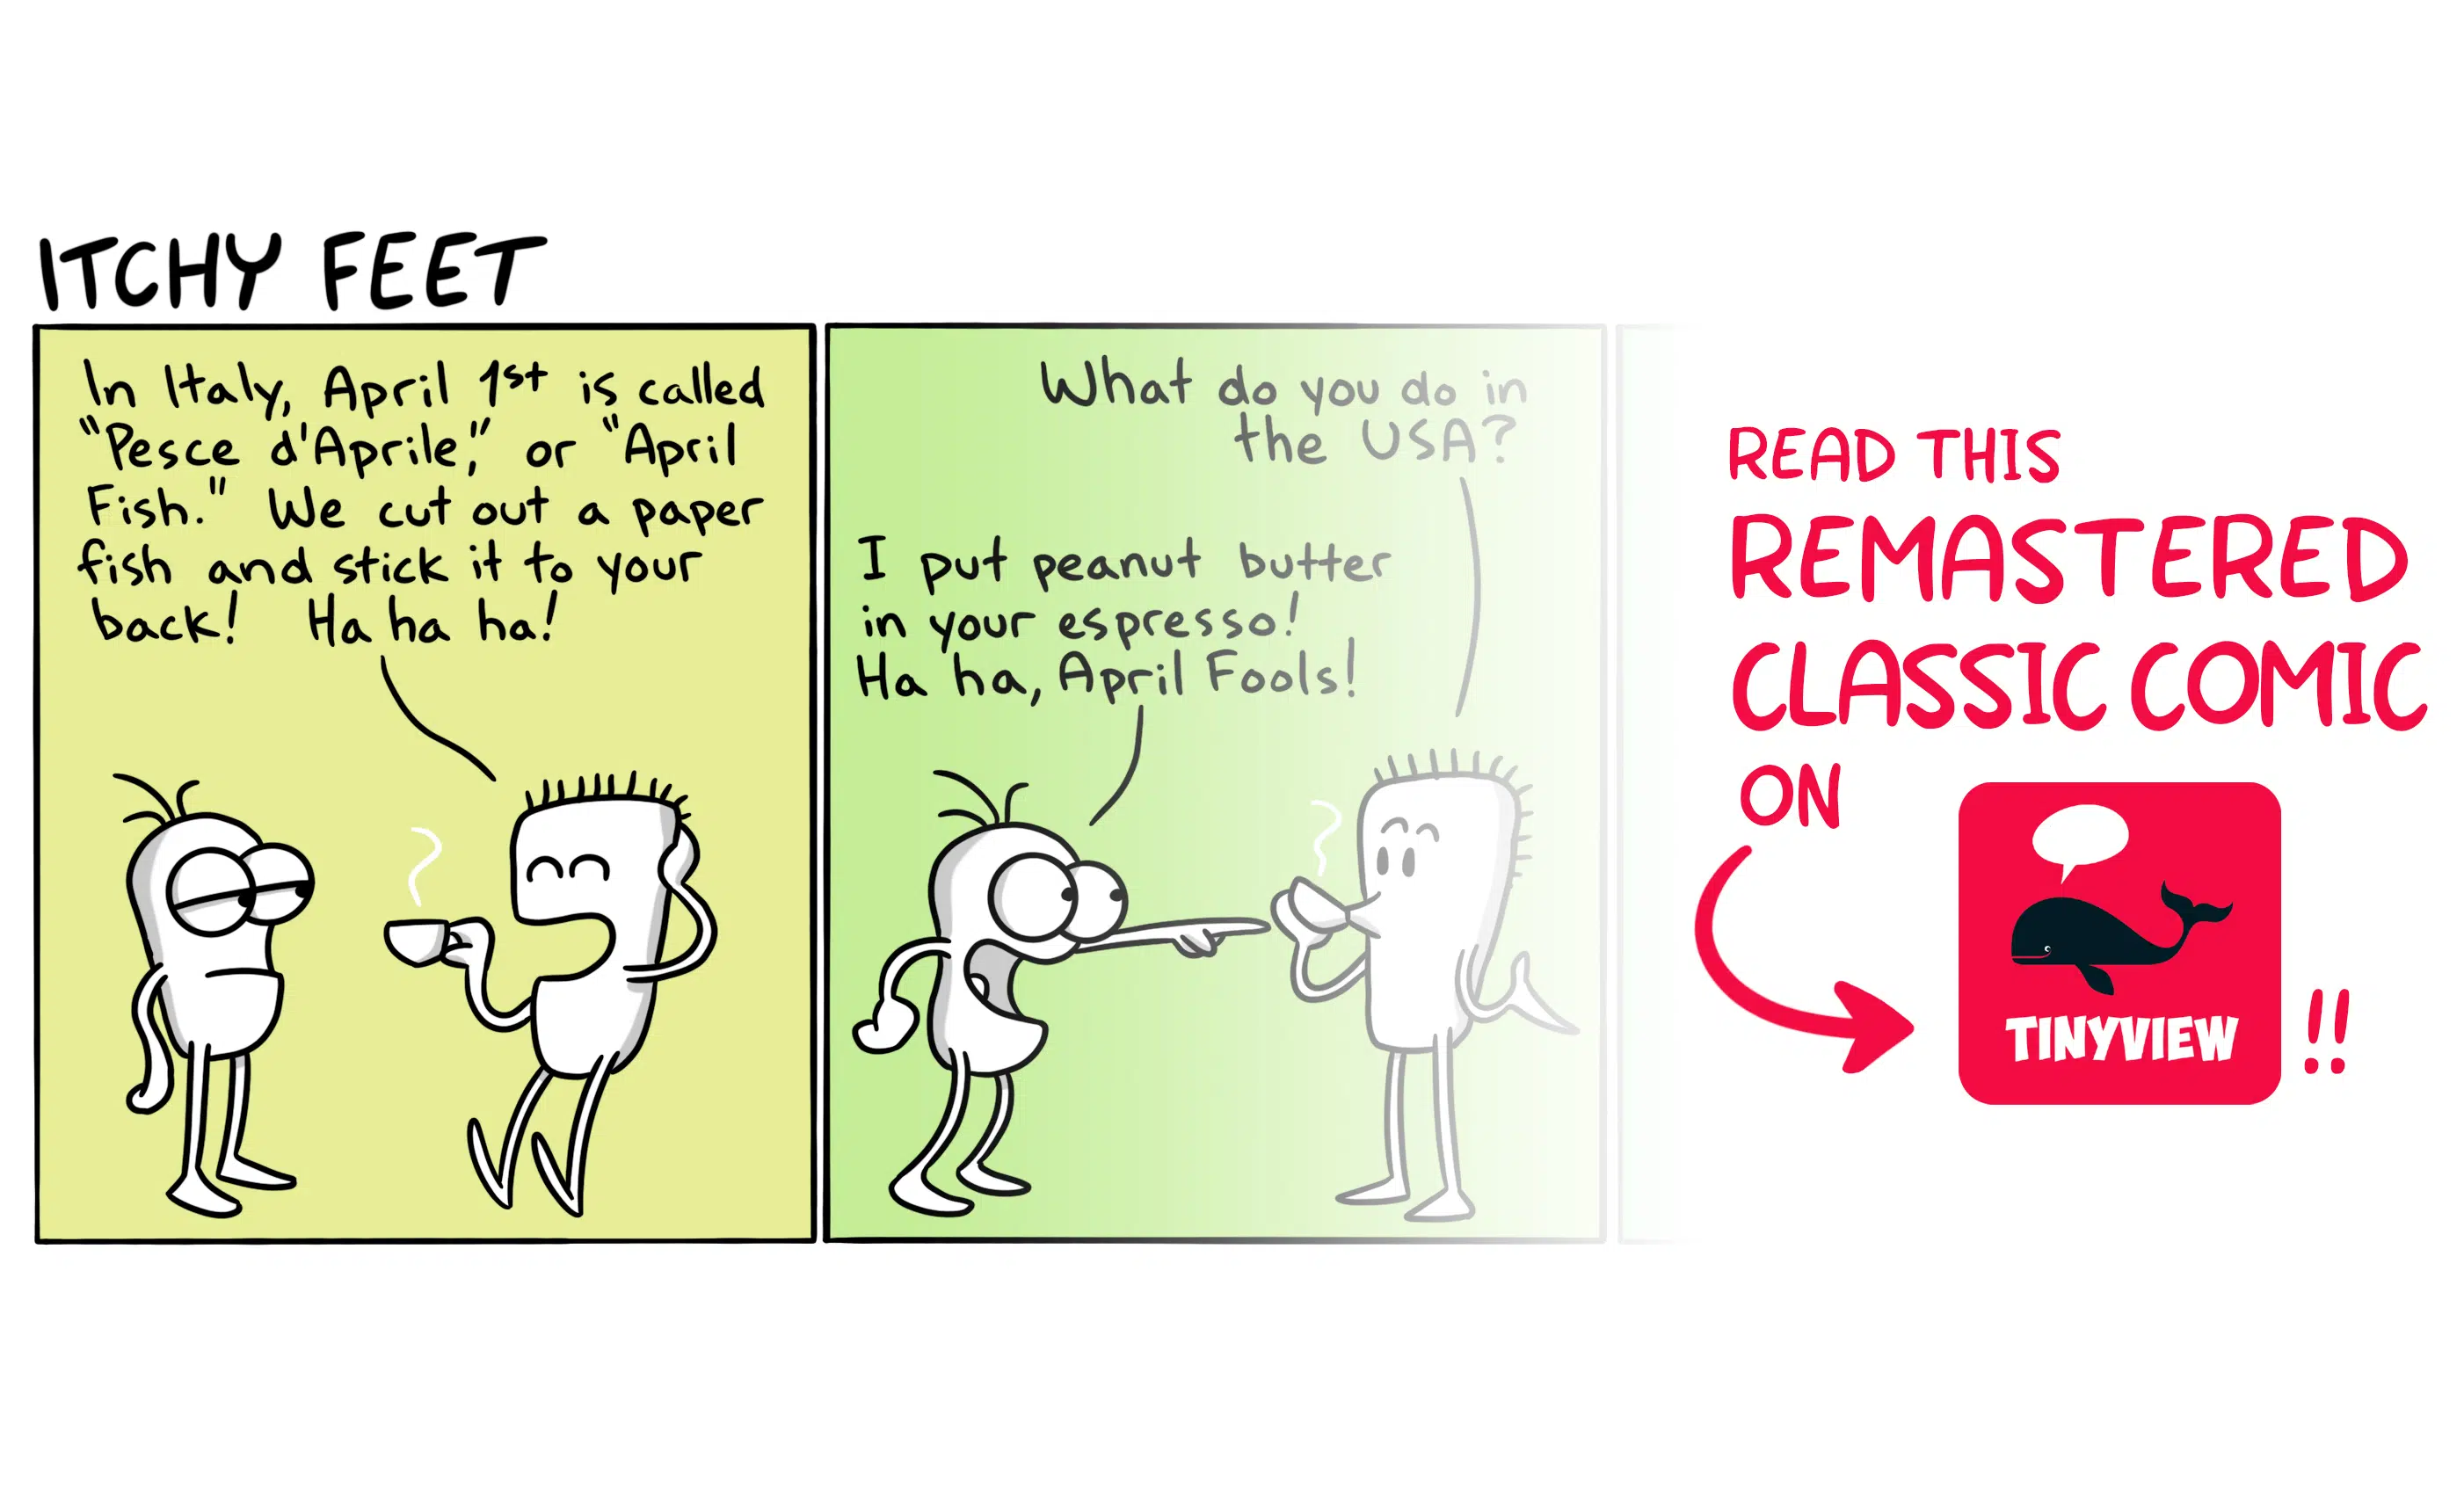 ITCHY FEET
In Italy, April 1st is called
"Pesce d'Aprile," or "April
Fish." We cut out a paper
fish and stick it to your
back! Ha ha ha!
What do you do in
the USA?
I put peanut butter
in your espresso!
Ha ha, April Fools!
READ THIS
REMASTERED
CLASSIC COMIC
ON
TINYVIEW
!!